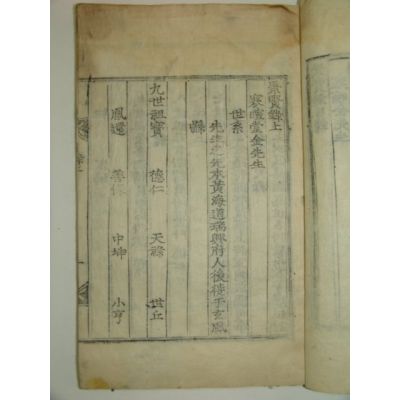 景賢錄上
寒暄堂金先生
世系
先生之先本黃海道瑞興府人後徙于玄風
縣
九世祖寶 德仁 天祿 世丘
鳳還 善保 中坤 小亨